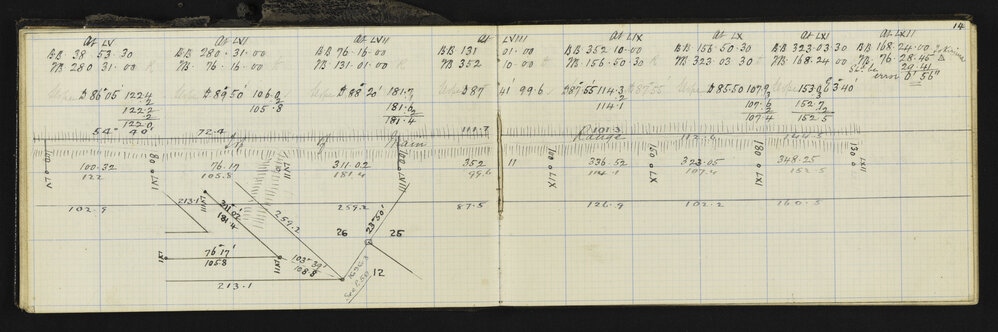 14
At LV At LVI At LVII At LVIII At LIX At LX At LXI At LXII
BB 38·53·30 BB 280·31·00 BB 76·16·00 BB 131 01·00 BB 352 10·00 BB 156·50·30 BB 323·03·30 BB 168·24·00
FB 280 31·00 FB 76·16·00 FB 131·01·00 FB 352 10·00 FB 156·50 30 FB 323 03 30 FB 168·24·00 FB 76·28·45
29·41
error 0' 56"
Slope D 86°05' 122.4 D 89°50' 106.0 D 88°20' 181.7 D 87 41 99.6 D 87°55 114.3 D 85.50 107.9 Slope 153.0 3 40'
2 2
122.2 105.8 181.6 114.1 107.6 152.7
2 2 3 2
122.0 181.4 107.4 152.5
54° 49' 72.4 111.7 101.3 112.6 144.5
Top of Main Range
100·32 76·17 311·02 352 11 336·52 323·05 348·25
122 105.8 181.4 99.6 114.1 107.4 152.5
LV LVI LVII LVIII LIX LX LXI LXII
102.9 259.2 87.5 126.9 102.2 160.5
213.1
311°02'
181.4
259.2
23°50'
26 25
76°17'
105.8
103°39'
108.8
12
213.1